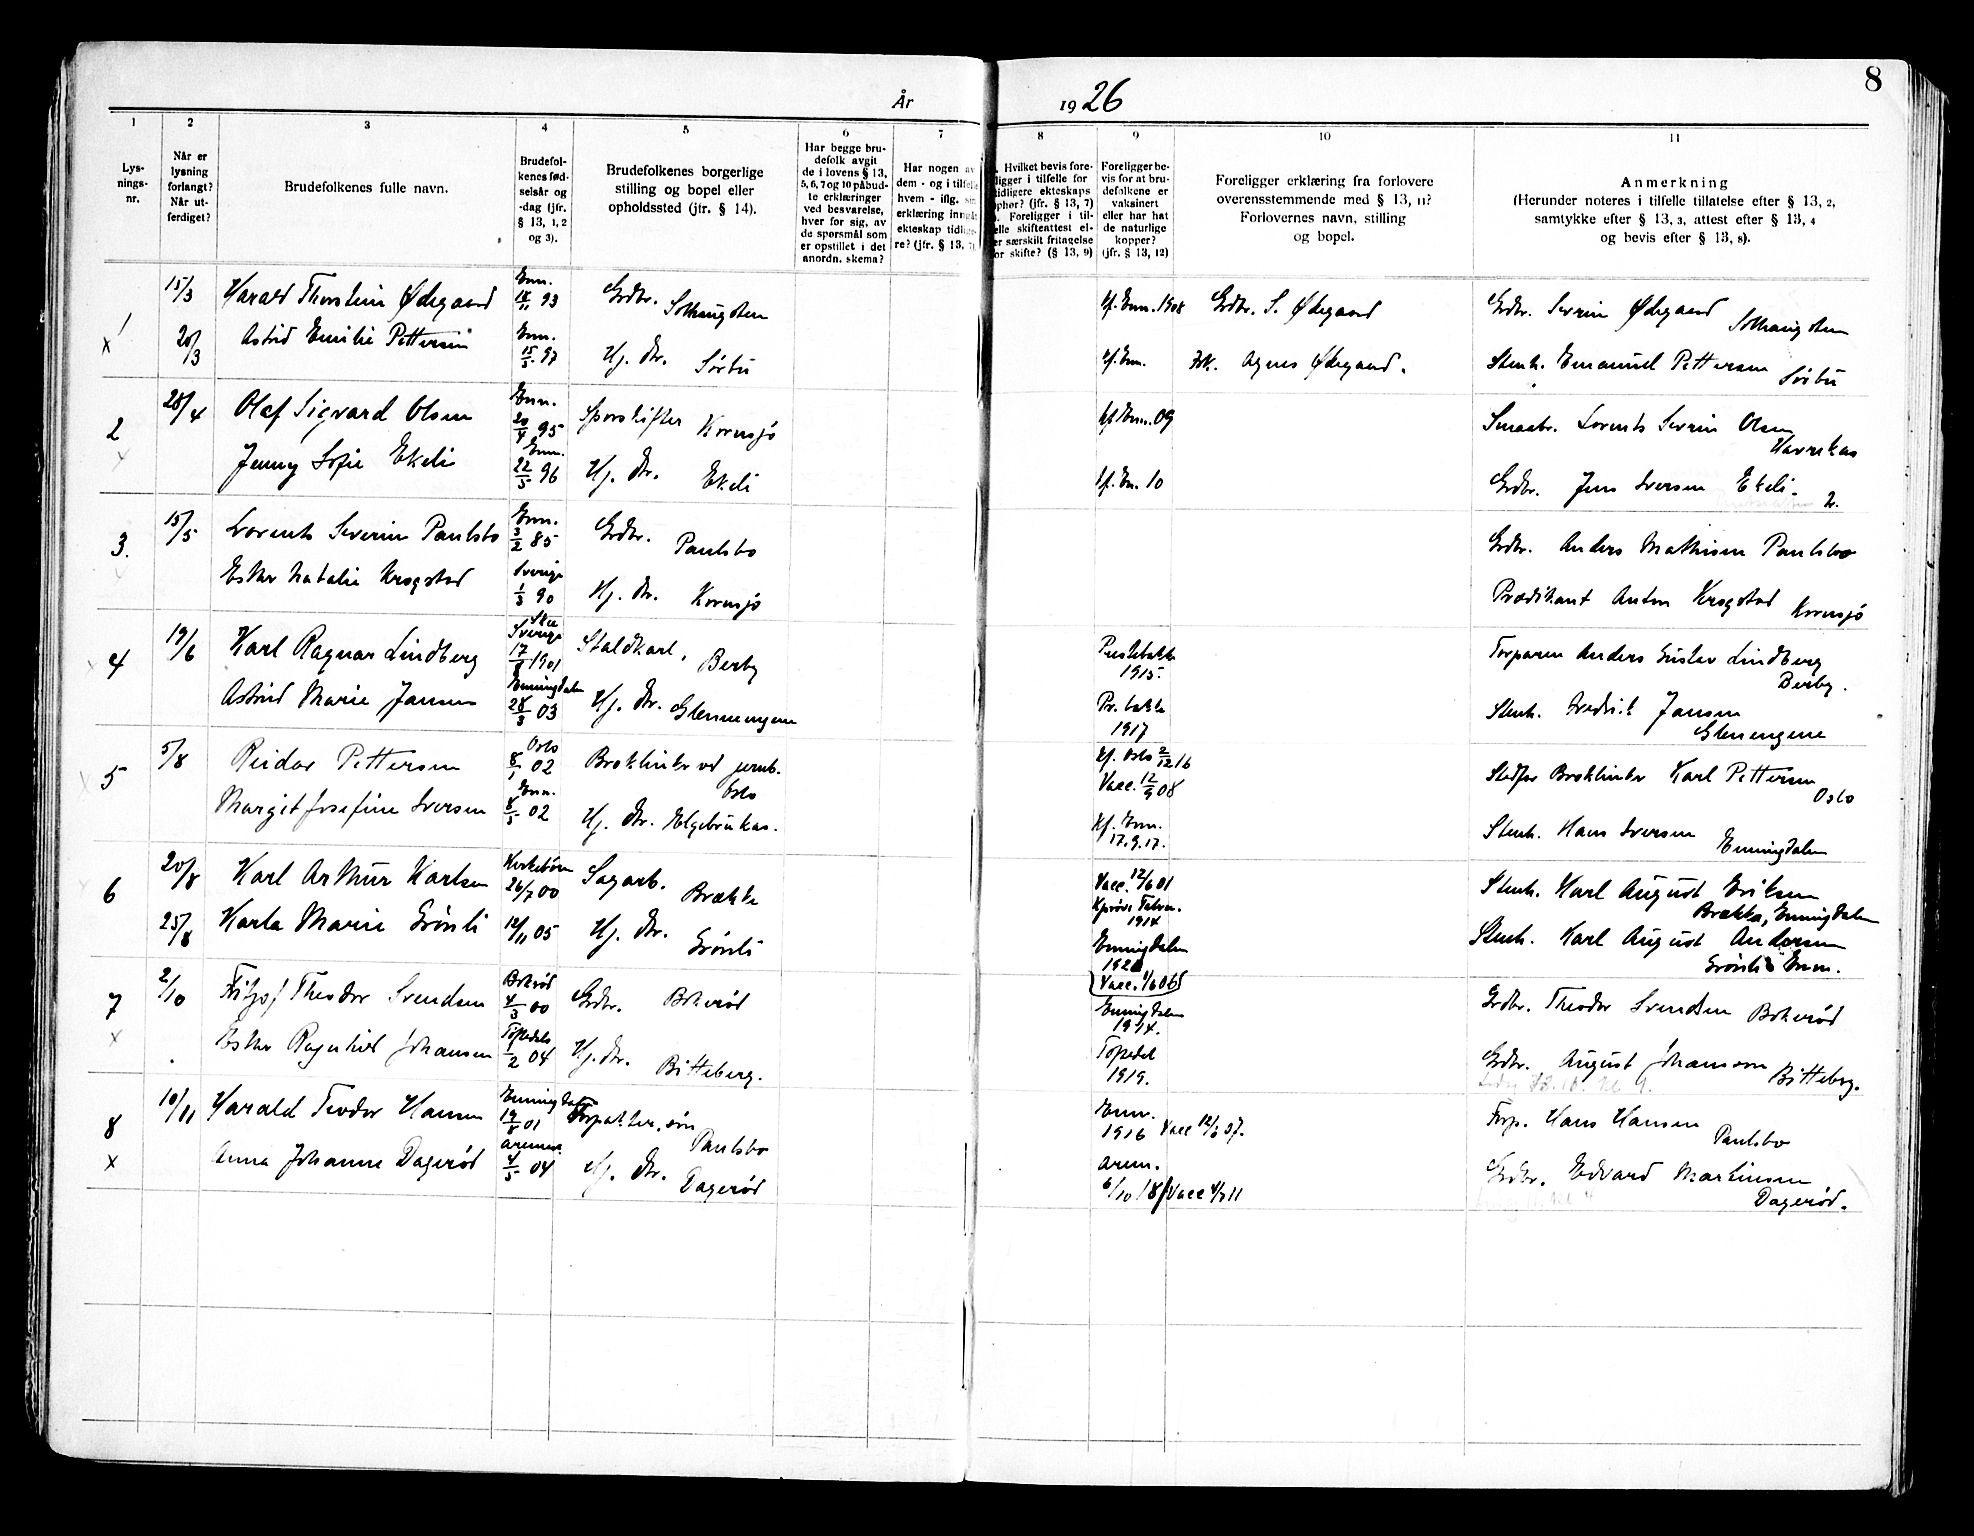 8
År 1926
1 2 3 4 5 6 7 8 9 10 11
Lys-
nings-
nr.
Når er
lysning
forlangt?
Når ut-
ferdiget?
Brudefolkenes fulle navn.
Brudefol-
kenes fød-
selsår og
-dag (jfr.
§ 13, 1, 2
og 3).
Brudefolkenes borgerlige
stilling og bopel eller
opholdssted (jfr. § 14).
Har begge bru-
defolk avgit
de i lovens § 13,
5, 6, 7 og 10 påbud-
te erklæringer
ved besvarelse,
hver for sig, av
de spørsmål som
er opstillet i det
anordn. skema?
Har nogen av
dem - og i tilfelle
hvem - iflg. sin
erklæring inngåt
ekteskap tidlig-
re? (jfr. § 13, 7)
Hvilket bevis fore-
ligger i tilfelle for
tidligere ekteskaps
ophør? (jfr. § 13, 7)
Foreligger i til-
felle skifteattest el-
er særskilt fritagelse
for skifte? (§ 13, 9)
Foreligger be-
vis for at bru-
defolkene er
vaksinert
eller har hat
de naturlige
kopper?
(jfr. § 13, 12)
Foreligger erklæring fra forlovere
overensstemmende med § 13, 11?
Forlovernes navn, stilling
og bopel.
Anmerkning
(Herunder noteres i tilfelle tillatelse efter § 13, 2,
samtykke efter § 13, 3, attest efter § 13, 4
og bevis efter § 13, 8).
1 15/3 Harald Thorstein Ødegaard Enn. 18/11 93 Grdbr. Solhaugsten Kf. Enn. 1908 Grdbr. S. Ødegaard Grdbr. Severin Ødegaard Solhaugsten
x 20/3 Astrid Emilie Pettersen Enn. 15/5 97 Hj. Dtr. Sørbü Kf. Enn. Frk. Agnes Ødegaard. Stenh. Emanuel Pettersen Sørbü
2 28/4 Olaf Sigvard Olsen Enn. 20/4 95 Sporskifter Kornsjø Kf. Enn. 09 Smaabr. Lorents Severin Olsen
x Jenny Sofie Ekeli Enn. 22/5 96 Hj. Dtr. Ekeli Kf. En. 10 Grdbr. Jens Iversen Ekeli.
3. 15/5 Lorents Severin Paulsbo Enn. 3/2 85 Grdbr. Paulsbo Grdbr. Anders Mathisen Paulsbo
x Ester Natalie Krogstad Sverige 1/3 90 Hj. Dtr. Kornsjø Prædikant Anton Krogstad Kornsjø
x 4 19/6 Karl Ragnar Lindberg Sverige 17/8 1901 Staldkarl, Berby Prestebakke 1915. Torparen Anders Gustav Lindberg Berby.
Astrid Marie Jansen Enningdalen 28/3 03 Hj. Dtr. Glenneengene Pr. bakke 1917 Stenh. Fredrik Jansen Glenengene
x 5 5/8 Reidar Pettersen Oslo 8/1 02 Broklinker vd jernb. Oslo Kf. Oslo 2/12 16 Vacc. 12/9 08 Stedfar Broklinker Karl Pettersen Oslo
Margit Josefine Iversen Enn. 8/5 02 Hj. Dtr. Elgebrükas. Kf. Enn. 17.9.17. Stenh. Hans Iversen Enningdalen
6 20/8 Karl Arthur Karlsen 26/7 00 Sagarb. Brække Vacc. 12/6 01 1914 Stenh. Karl August Eriksen Brække, Enningdalen
25/8 Karla Marie Grönli 12/11 05 Hj. Dtr. Grönli Enningdalen Stenh. Karl August Andersen Grönli Enn.
7 2/10 Fritjof Theodor Svendsen Bokerød 4/3 00 Grdbr. Bokerød (Vacc. 1/6 06) Enningdalen 1914. Grdbr. Theodor Svendsen Bokerød
x Ester Ragnhild Johansen 1/2 04 Hj. Dtr. Bitteberg. Topedal 1919. Grdbr. August Johansson Bitteberg.
8 10/11 Harald Teodor Hansen Enningdalen 19/8 01 Forpakter, søn Paulsbo Enn. 1916 Vacc 12/6 07. Forp. Hans Hansen Paulsbo
x Anna Johanne Dagerød Aremark 4/5 04 Hj. Dtr. Dagerød Arem. 6/10 18 Vacc 4/7 11 Grdbr. Edvard Martinsen Dagerød.